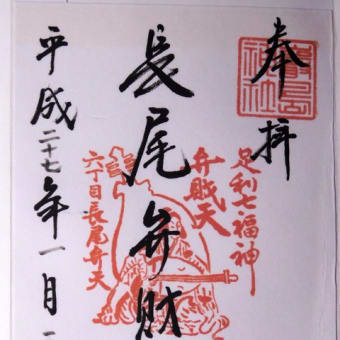 奉拝
足利七福神
弁賍天
長尾弁財
六丁目長尾弁天
平成二十七年一月一